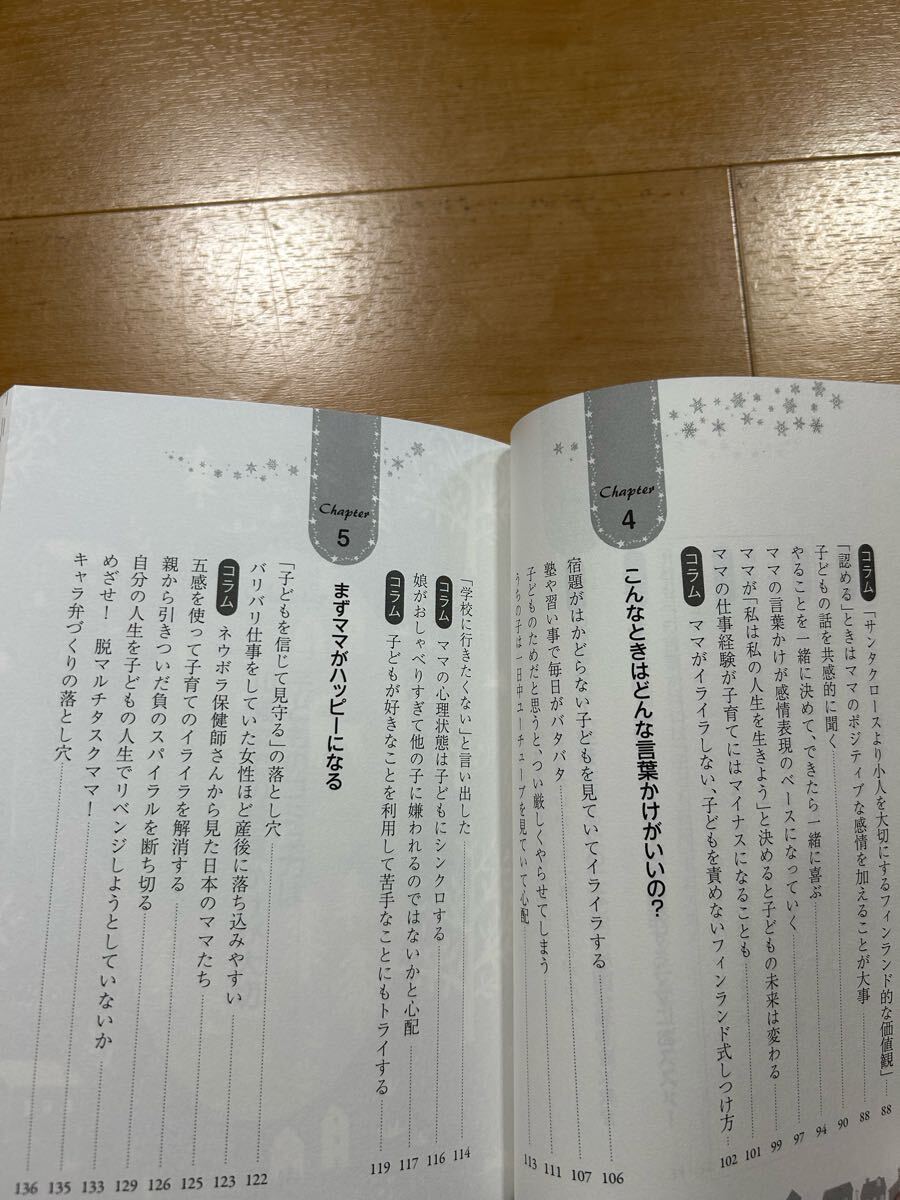 コラム 「サンタクロースより小人を大切にするフィンランド的な価値観」 88
「認める」ときはママのポジティブな感情を加えることが大事 88
子どもの話を共感的に聞く 90
やることを一緒に決めて、できたら一緒に喜ぶ 94
ママの言葉かけが感情表現のベースになっていく 97
ママが「私は私の人生を生きよう」と決めると子どもの未来は変わる 99
ママの仕事経験が子育てにはマイナスになることも 101
コラム ママがイライラしない、子どもを責めないフィンランド式しつけ方 102
Chapter 4
こんなときはどんな言葉かけがいいの？
宿題がはかどらない子どもを見ていてイライラする 106
塾や習い事で毎日がバタバタ 107
子どものためだと思うと、つい厳しくやらせてしまう 111
うちの子は一日中ユーチューブを見ていて心配 113
「学校に行きたくない」と言い出した 114
コラム ママの心理状態は子どもにシンクロする 116
娘がおしゃべりすぎて他の子に嫌われるのではないかと心配 117
コラム 子どもが好きなことを利用して苦手なことにもトライする 119
Chapter 5
まずママがハッピーになる
「子どもを信じて見守る」の落とし穴 122
バリバリ仕事をしていた女性ほど産後に落ち込みやすい 123
コラム ネウボラ保健師さんから見た日本のママたち 125
五感を使って子育てのイライラを解消する 126
親から引きついだ負のスパイラルを断ち切る 129
自分の人生を子どもの人生でリベンジしようとしていないか 133
めざせ！ 脱マルチタスクママ！ 135
キャラ弁づくりの落とし穴 136